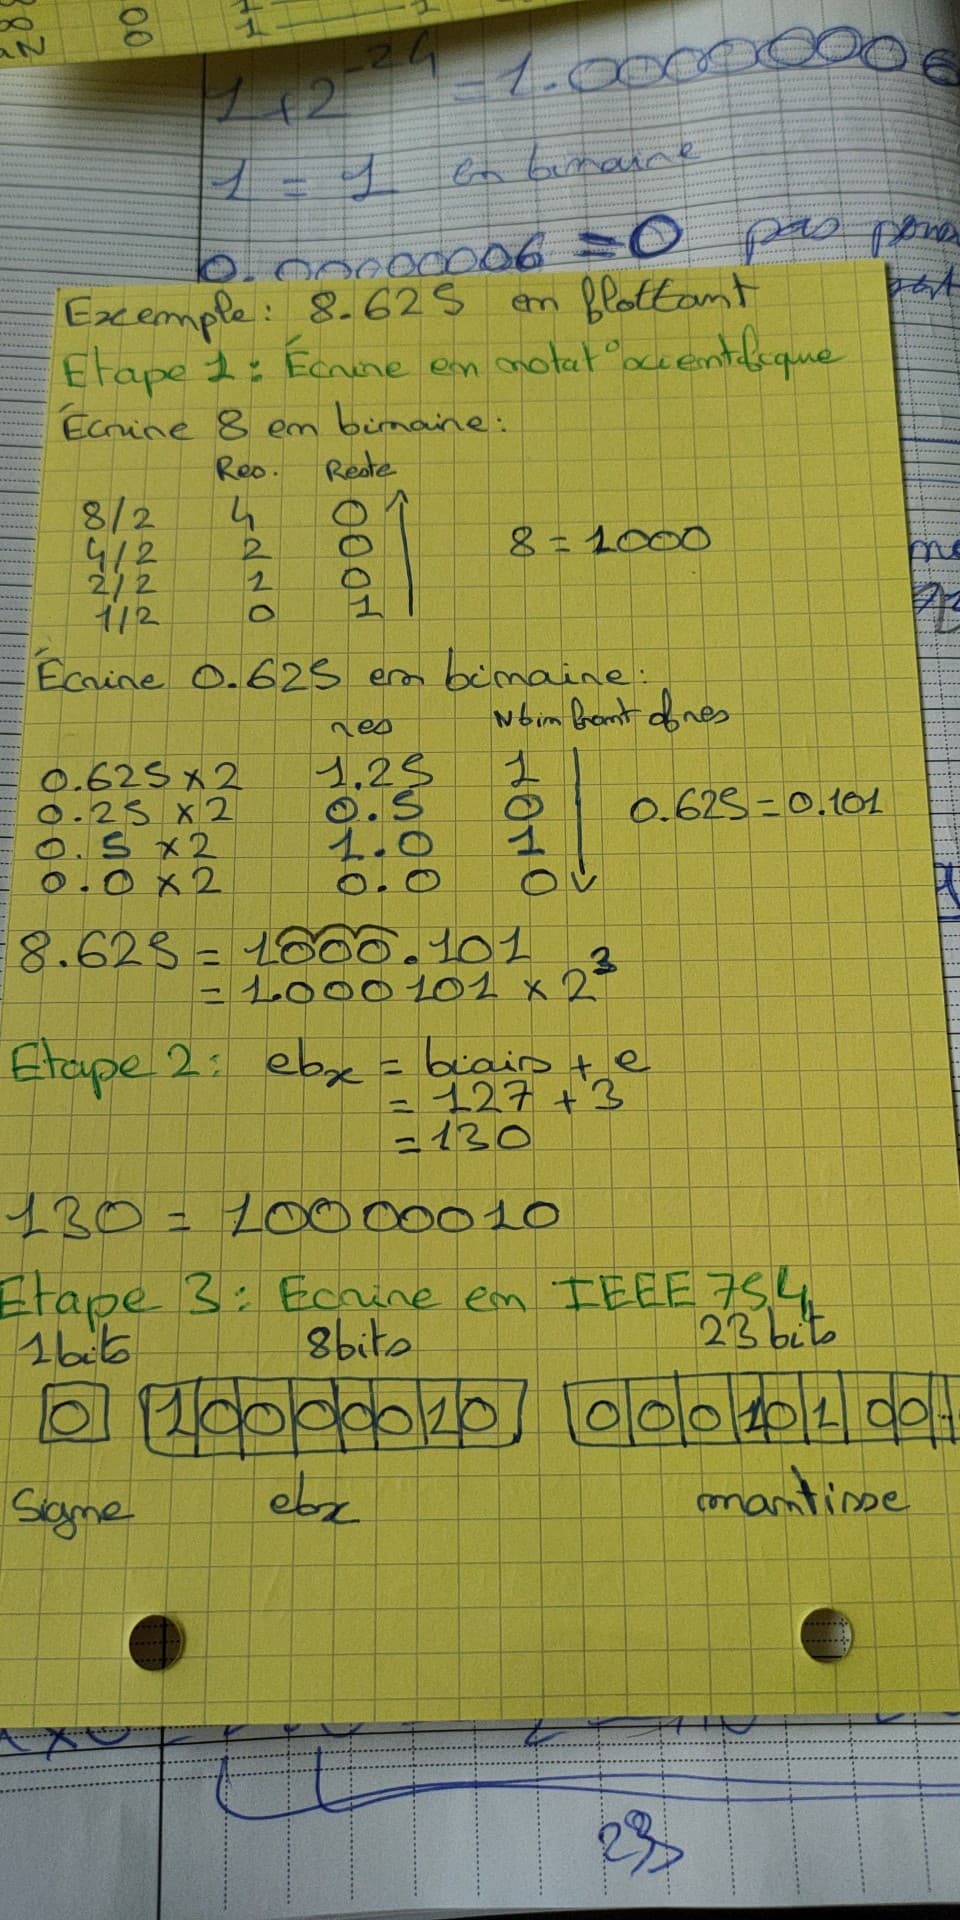 1+2^-24 = 1.00000006
1 = 1 en binaire
0.00000006 = 0 pas
Exemple: 8.625 en flottant
Etape 1: Écrire en notat° scientifique
Écrire 8 en binaire:
Res. Reste
8/2 4 0
4/2 2 0
2/2 1 0
1/2 0 1
8 = 1000
Écrire 0.625 en binaire:
res Nb in front of res
0.625 x 2 1.25 1
0.25 x 2 0.5 0
0.5 x 2 1.0 1
0.0 x 2 0.0 0
0.625 = 0.101
8.625 = 1000.101
= 1.000101 x 2^3
Etape 2: ebx = biais + e
= 127 + 3
= 130
130 = 10000010
Etape 3: Ecrire en IEEE 754
1 bits 8 bits 23 bits
0 1 0 0 0 0 0 1 0 0 0 0 1 0 1 0 0 ..
Signe ebx mantisse